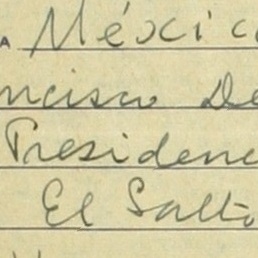 A México
ncisco De
Presidenc
El Salto